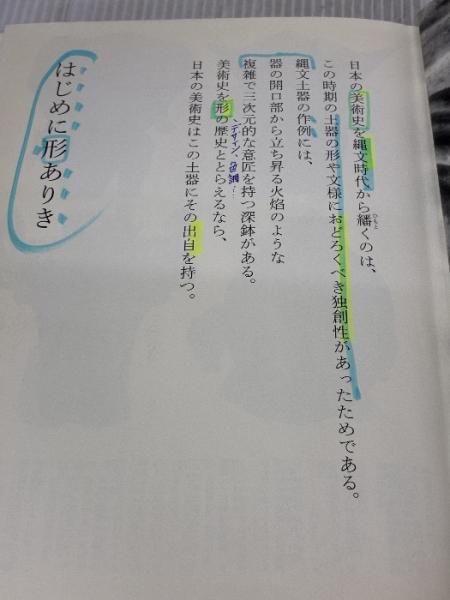 日本の美術史を縄文時代から繙くのは、
ひもと
この時期の土器の形や文様におどろくべき独創性があったためである。
縄文土器の作例には、
器の開口部から立ち昇る火焔のような
複雑で三次元的な意匠を持つ深鉢がある。
デザイン、色調…
美術史を形の歴史ととらえるなら、
日本の美術史はこの土器にその出自を持つ。
はじめに形ありき